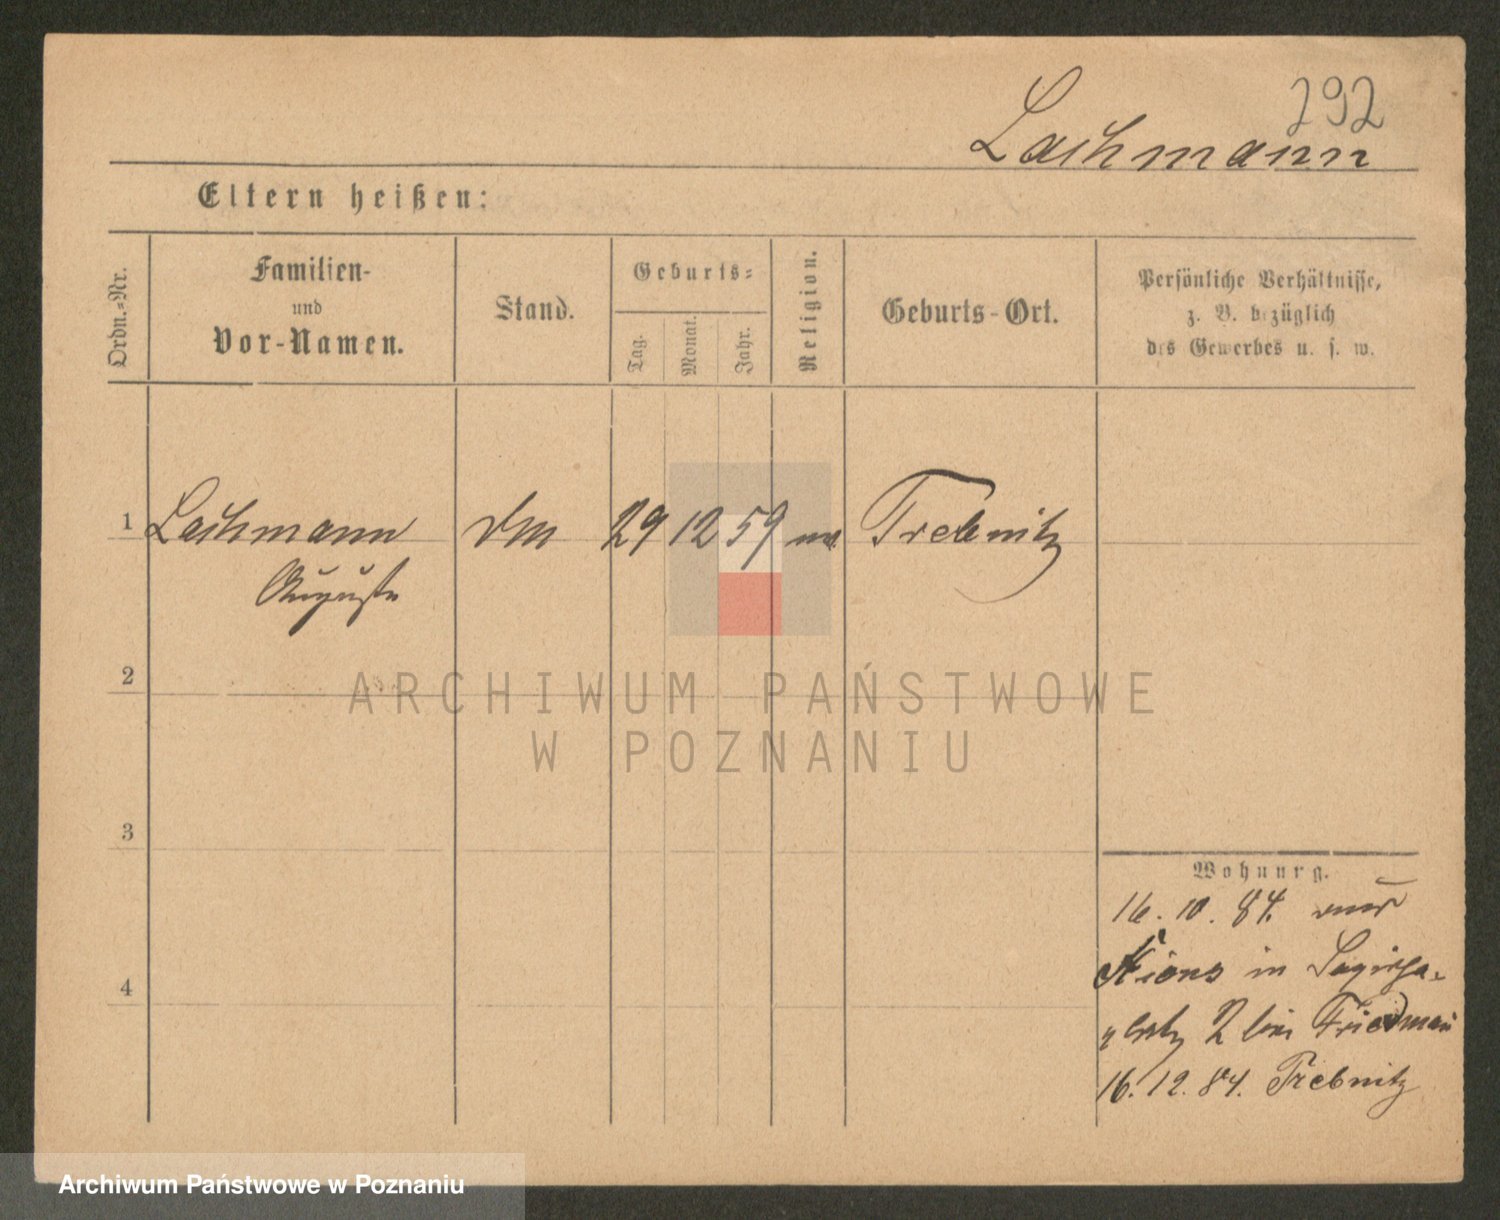 292
Lachmann
Eltern heißen:
Ordn.-Nr.
Familien-
und
Vor-Namen.
Stand.
Geburts-
Tag.
Monat.
Jahr.
Religion.
Geburts-Ort.
Persönliche Verhältnisse,
z. B. bezüglich
des Gewerbes u. s. w.
1 Lachmann 29 12 59 Trebnitz
Auguste
2
3
4
Wohnung.
16. 10. 84.
Xions in
2 bei Friedman
16. 12. 84. Trebnitz
ARCHIWUM PAŃSTWOWE
W POZNANIU
Archiwum Państwowe w Poznaniu